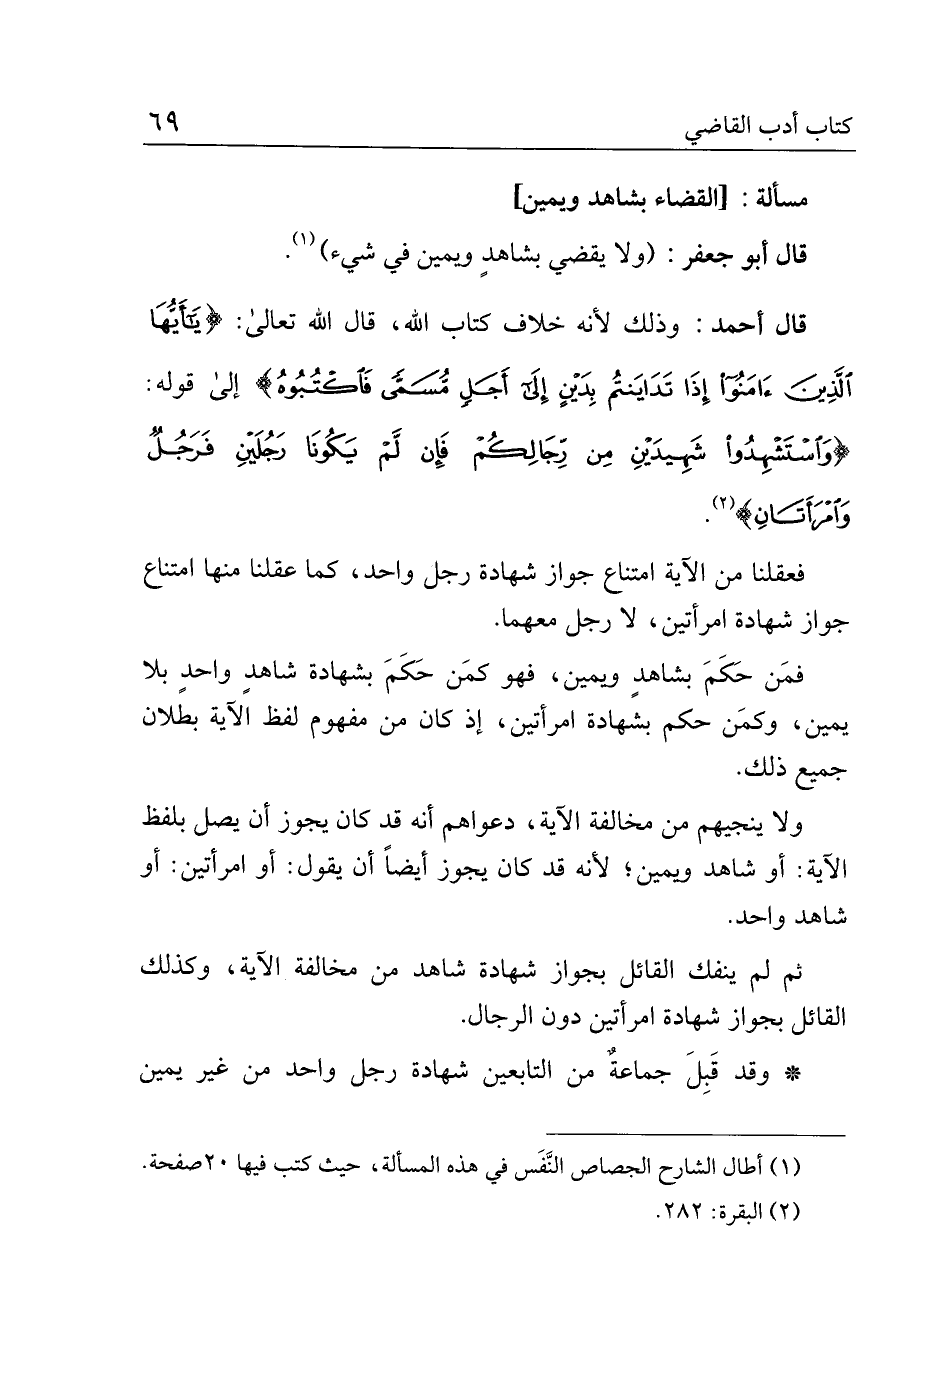 كتاب أدب القاضي ٦٩
مسألة : [القضاء بشاهد ويمين]
قال أبو جعفر : (ولا يقضي بشاهدٍ ويمين في شيء)(١).
قال أحمد : وذلك لأنه خلاف كتاب الله، قال الله تعالىٰ: ﴿يَٰٓأَيُّهَا
ٱلَّذِينَ ءَامَنُوٓاْ إِذَا تَدَايَنتُم بِدَيْنٍ إِلَىٰٓ أَجَلٍ مُّسَمًّى فَٱكْتُبُوهُ﴾ إلىٰ قوله:
﴿وَٱسْتَشْهِدُواْ شَهِيدَيْنِ مِن رِّجَالِكُمْ فَإِن لَّمْ يَكُونَا رَجُلَيْنِ فَرَجُلٌ
وَٱمْرَأَتَانِ﴾(٢).
فعقلنا من الآية امتناع جواز شهادة رجل واحد، كما عقلنا منها امتناع
جواز شهادة امرأتين، لا رجل معهما.
فمَن حَكَمَ بشاهدٍ ويمين، فهو كمَن حَكَمَ بشهادة شاهدٍ واحدٍ بلا
يمين، وكمَن حكم بشهادة امرأتين، إذ كان من مفهوم لفظ الآية بطلان
جميع ذلك.
ولا ينجيهم من مخالفة الآية، دعواهم أنه قد كان يجوز أن يصل بلفظ
الآية: أو شاهد ويمين؛ لأنه قد كان يجوز أيضاً أن يقول: أو امرأتين: أو
شاهد واحد.
ثم لم ينفك القائل بجواز شهادة شاهد من مخالفة الآية، وكذلك
القائل بجواز شهادة امرأتين دون الرجال.
* وقد قَبِلَ جماعةٌ من التابعين شهادة رجل واحد من غير يمين
(١) أطال الشارح الجصاص النَّفَس في هذه المسألة، حيث كتب فيها ٢٠صفحة.
(٢) البقرة: ٢٨٢.